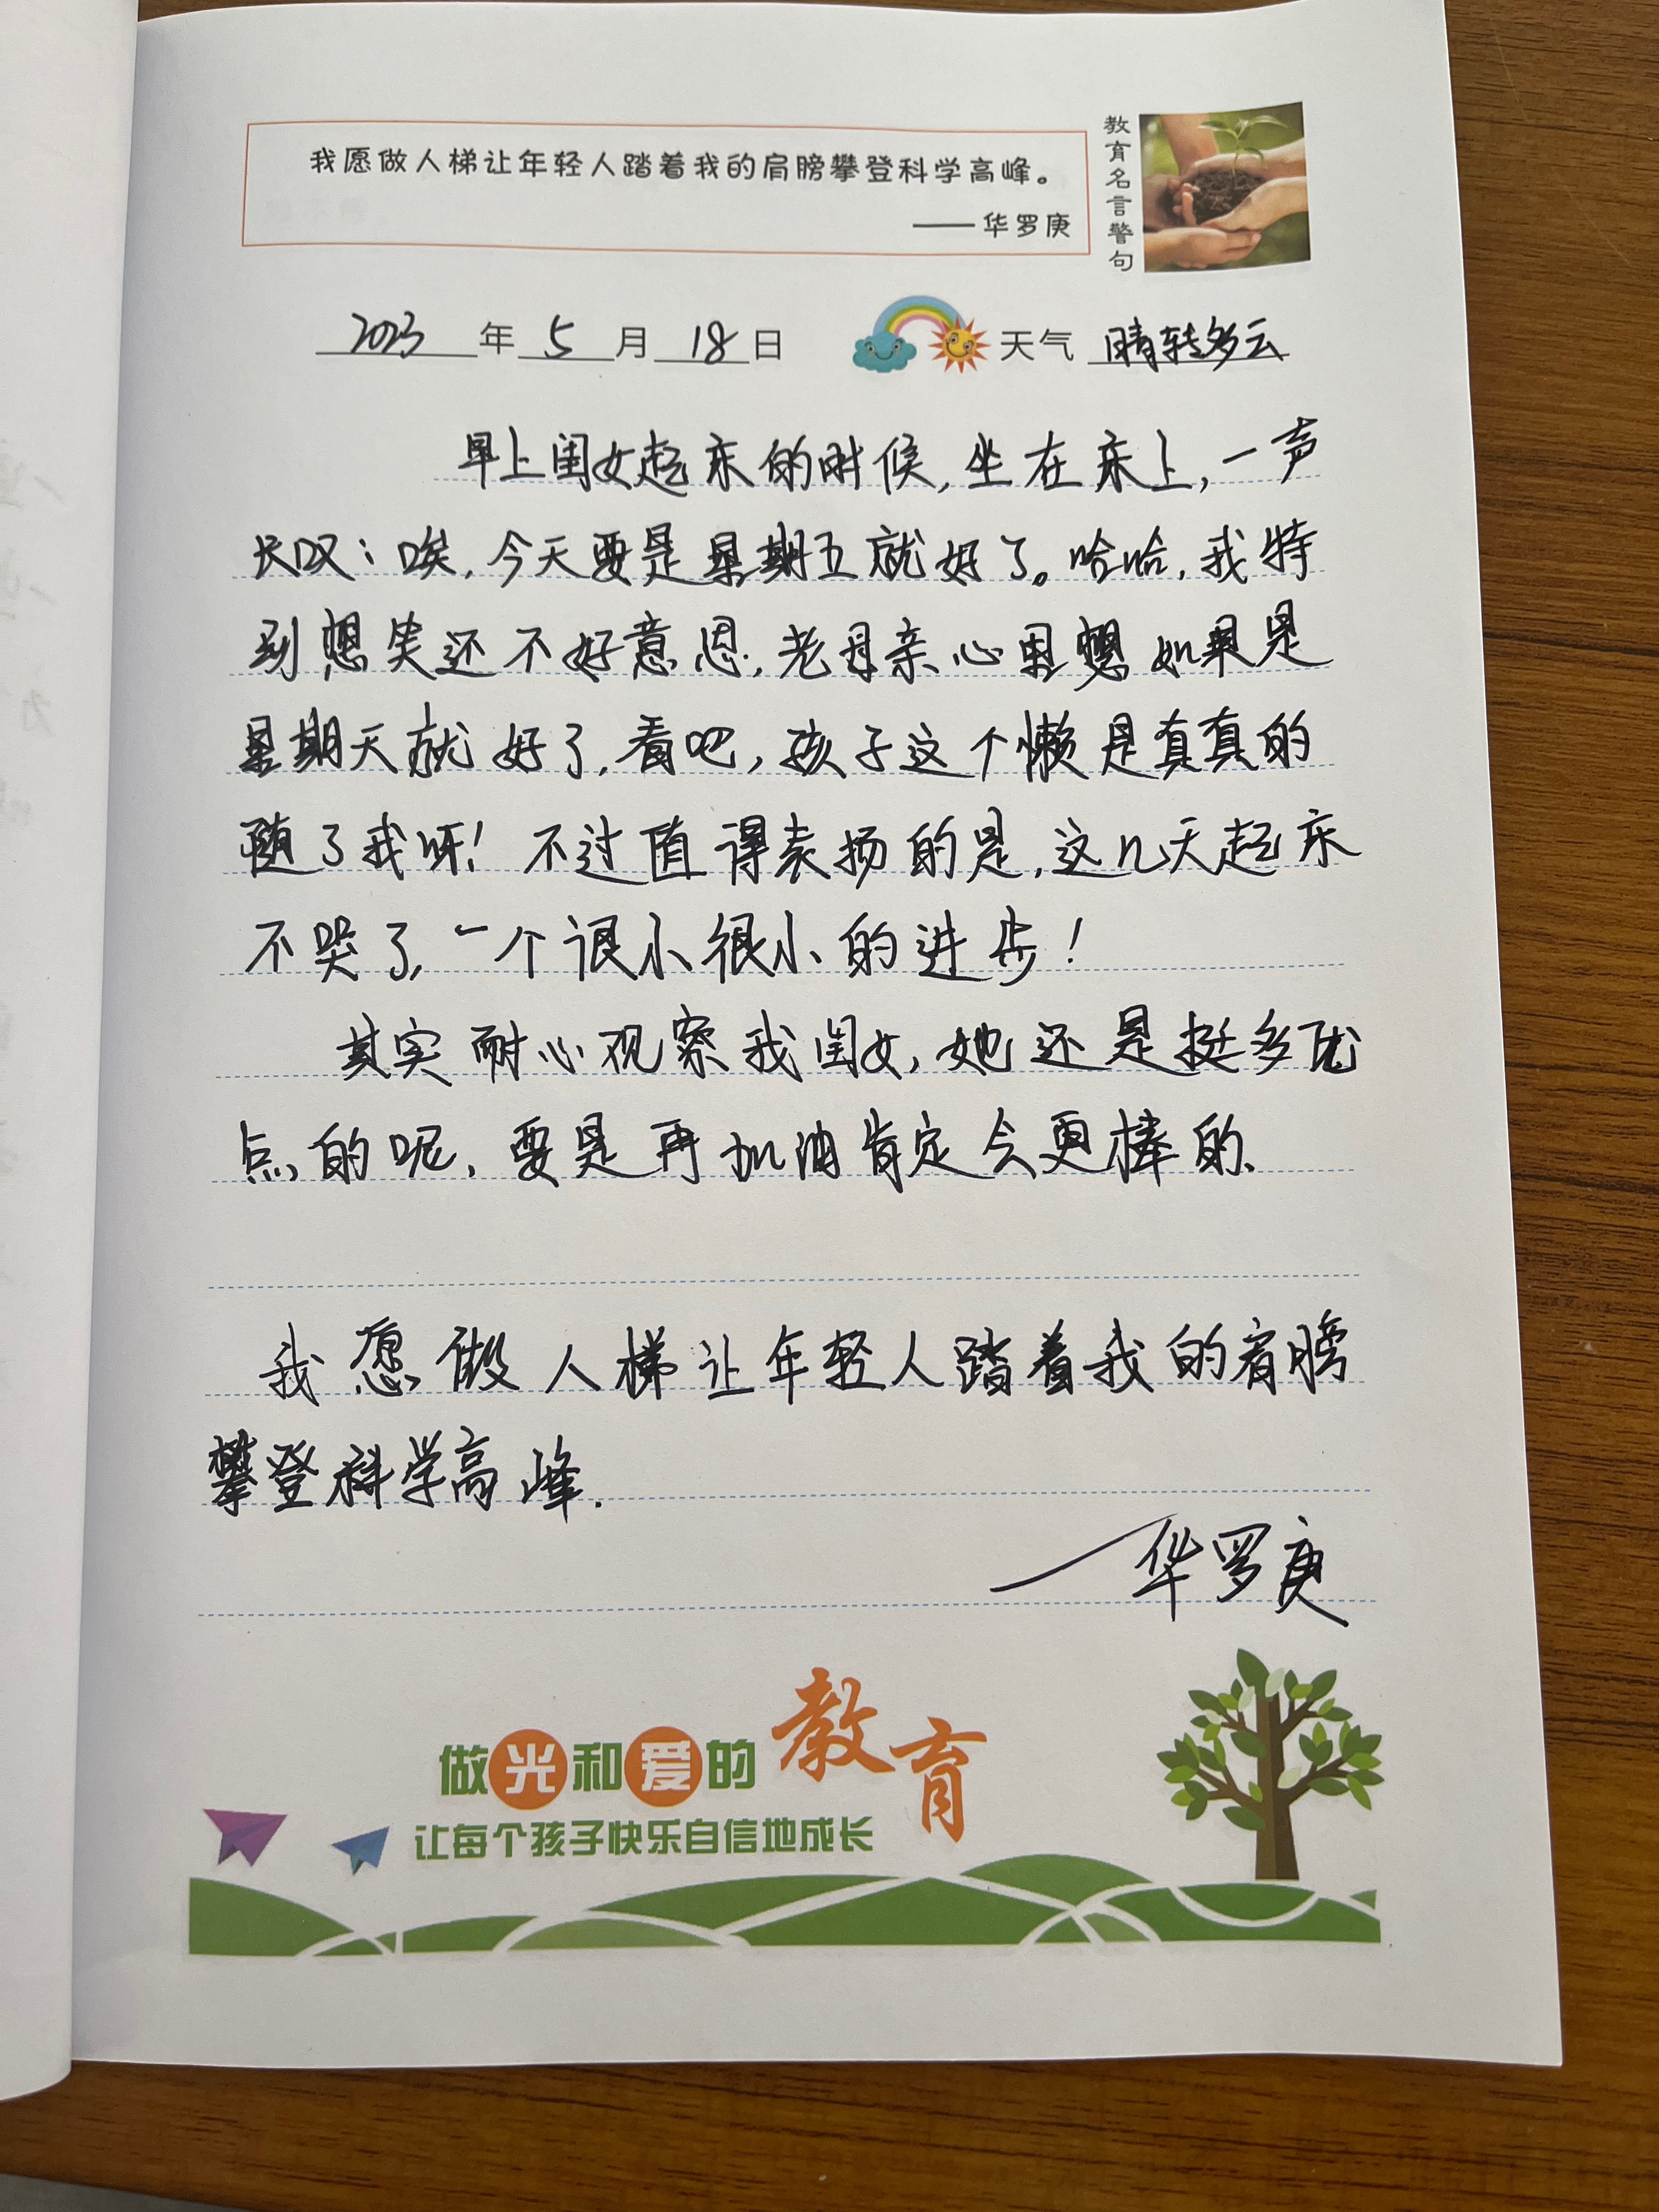 我愿做人梯让年轻人踏着我的肩膀攀登科学高峰。
——华罗庚
教育名言警句
2023年5月18日 天气 晴转多云
早上闺女起床的时候,坐在床上,一声
长叹:唉,今天要是星期五就好了。哈哈,我特
别想笑还不好意思,老母亲心里想如果是
星期天就好了,看吧,孩子这个懒是真真的
随了我呀!不过值得表扬的是,这几天起床
不哭了,一个很小很小的进步!
其实耐心观察我闺女,她还是挺多优
点的呢,要是再加油肯定会更棒的、
我愿做人梯让年轻人踏着我的肩膀
攀登科学高峰.
—华罗庚
做光和爱的教育
让每个孩子快乐自信地成长